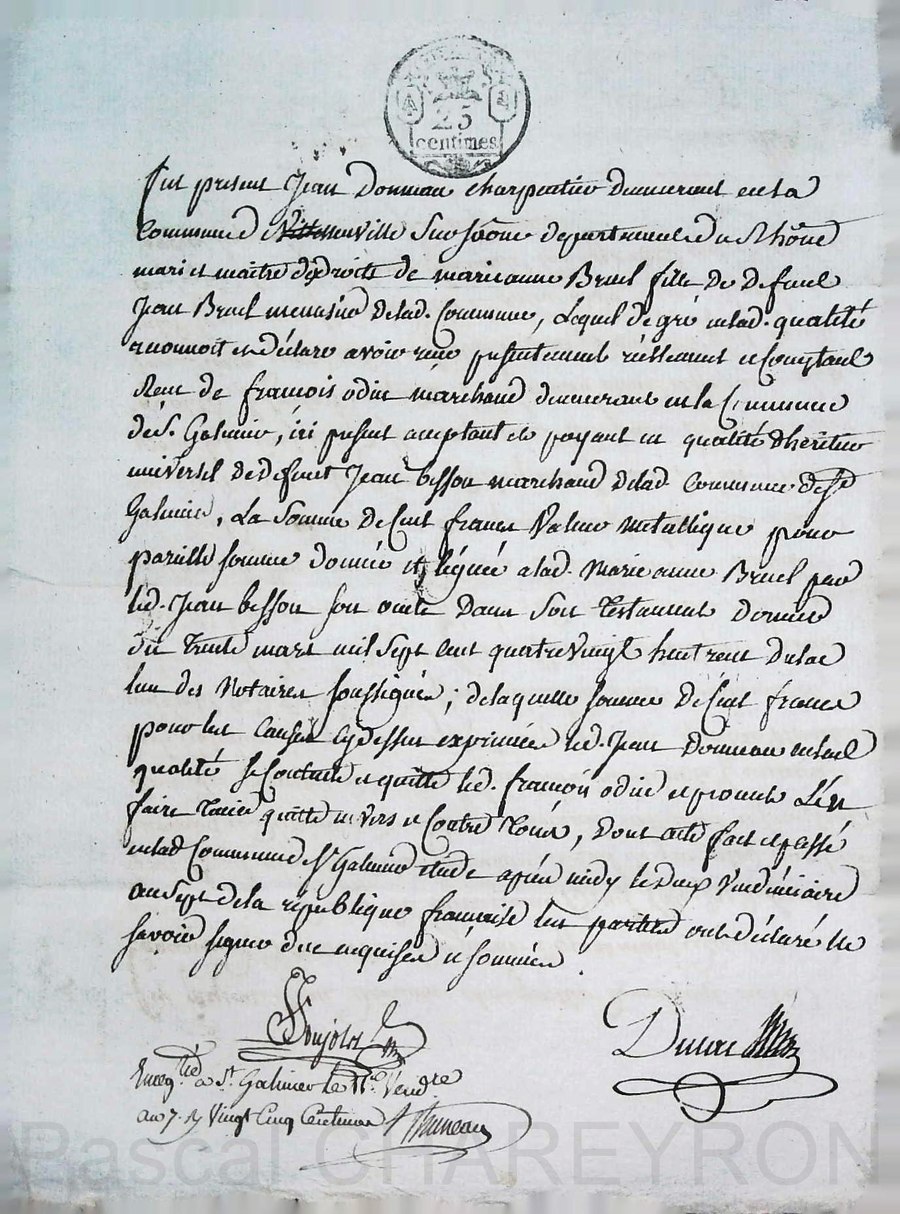 25
centimes
Fut present Jean Donneau charpentier demeurant en la
Commune de neuville sur saône departement du Rhône
mari et maitre des droits de marieanne Bruel fille de defunt
Jean Bruel menusier de lad. Commune, Lequel de gré en lad. qualité
a reconnoit et déclare avoir reçu presentement réellement et Comptant
Sieur de françois odin marchand demeurant en la Commune
de St. Galmier, ici present acceptant et payant en qualité dhéritier
universel de defunt Jean besson marchand de lad Commune de St
Galmier, La Somme de Cent francs Valeur metallique pour
pareille somme donnée et léguée a lad. Marie anne Bruel par
led. Jean besson son oncle Dans Son Testament Dernier
du trente mars mil sept cent quatrevingt huit recu Dulac
lun des Notaires soussignés ; de laquelle somme de Cent francs
pour les causes cydessus exprimées led. Jean Donneau en lad
qualité se Contente et quitte led. françois odin et promet L'en
faire tenir quitte envers et Contre Tous, Dont acte fait et passé
en lad Commune St Galmier étude apres midy le Deux Vendémiaire
an sept de la république française les parties ont déclaré ne
savoir signer de ce enquises et sommées .
Pujols
Dulac
Enregtré a St. Galmier le 11e. Vendre
an 7. r. Vingt Cinq Centimes
Pascal CHAREYRON